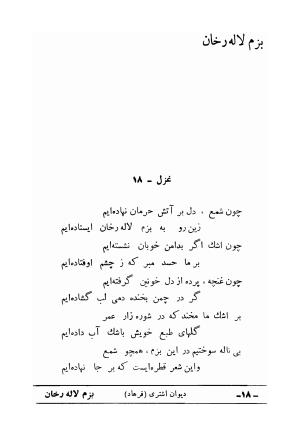 بزم لاله رخان
غزل - ۱۸
چون شمع ، دل بر آتش حرمان نهاده‌ایم
زین رو به بزم لاله رخان ایستاده‌ایم
چون اشك اگر بدامن خوبان نشسته‌ایم
بر ما حسد مبر که ز چشم اوفتاده‌ایم
چون غنچه ، پرده از دل خونین گرفته‌ایم
گر در چمن بخنده دمی لب گشاده‌ایم
بر اشك ما مخند که در شوره زار عمر
گلهای طبع خویش باشك آب داده‌ایم
بی ناله سوختیم در این بزم ، همچو شمع
واین شعر قطره‌است که بر جا نهاده‌ایم
-۱۸- دیوان اشتری (فرهاد) بزم لاله رخان